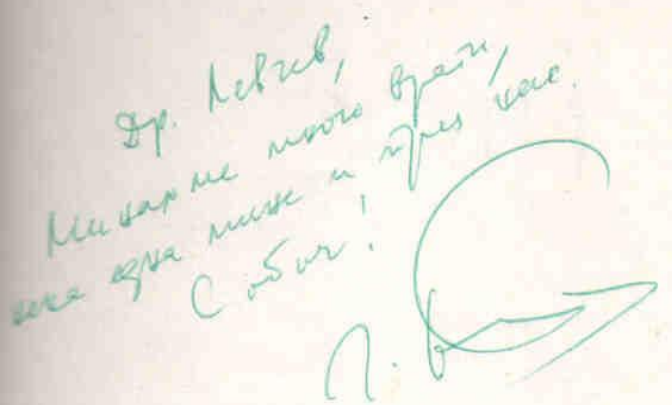 Др. Левчев,
Минахме много врати,
нека една мине и през нас.
С обич!